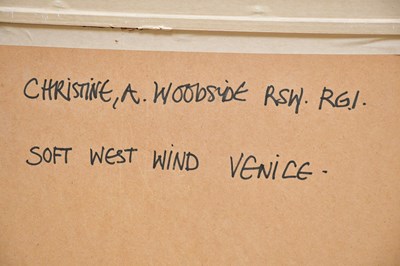 CHRISTINE, A. WOODSIDE RSW. RGI.
SOFT WEST WIND VENICE.